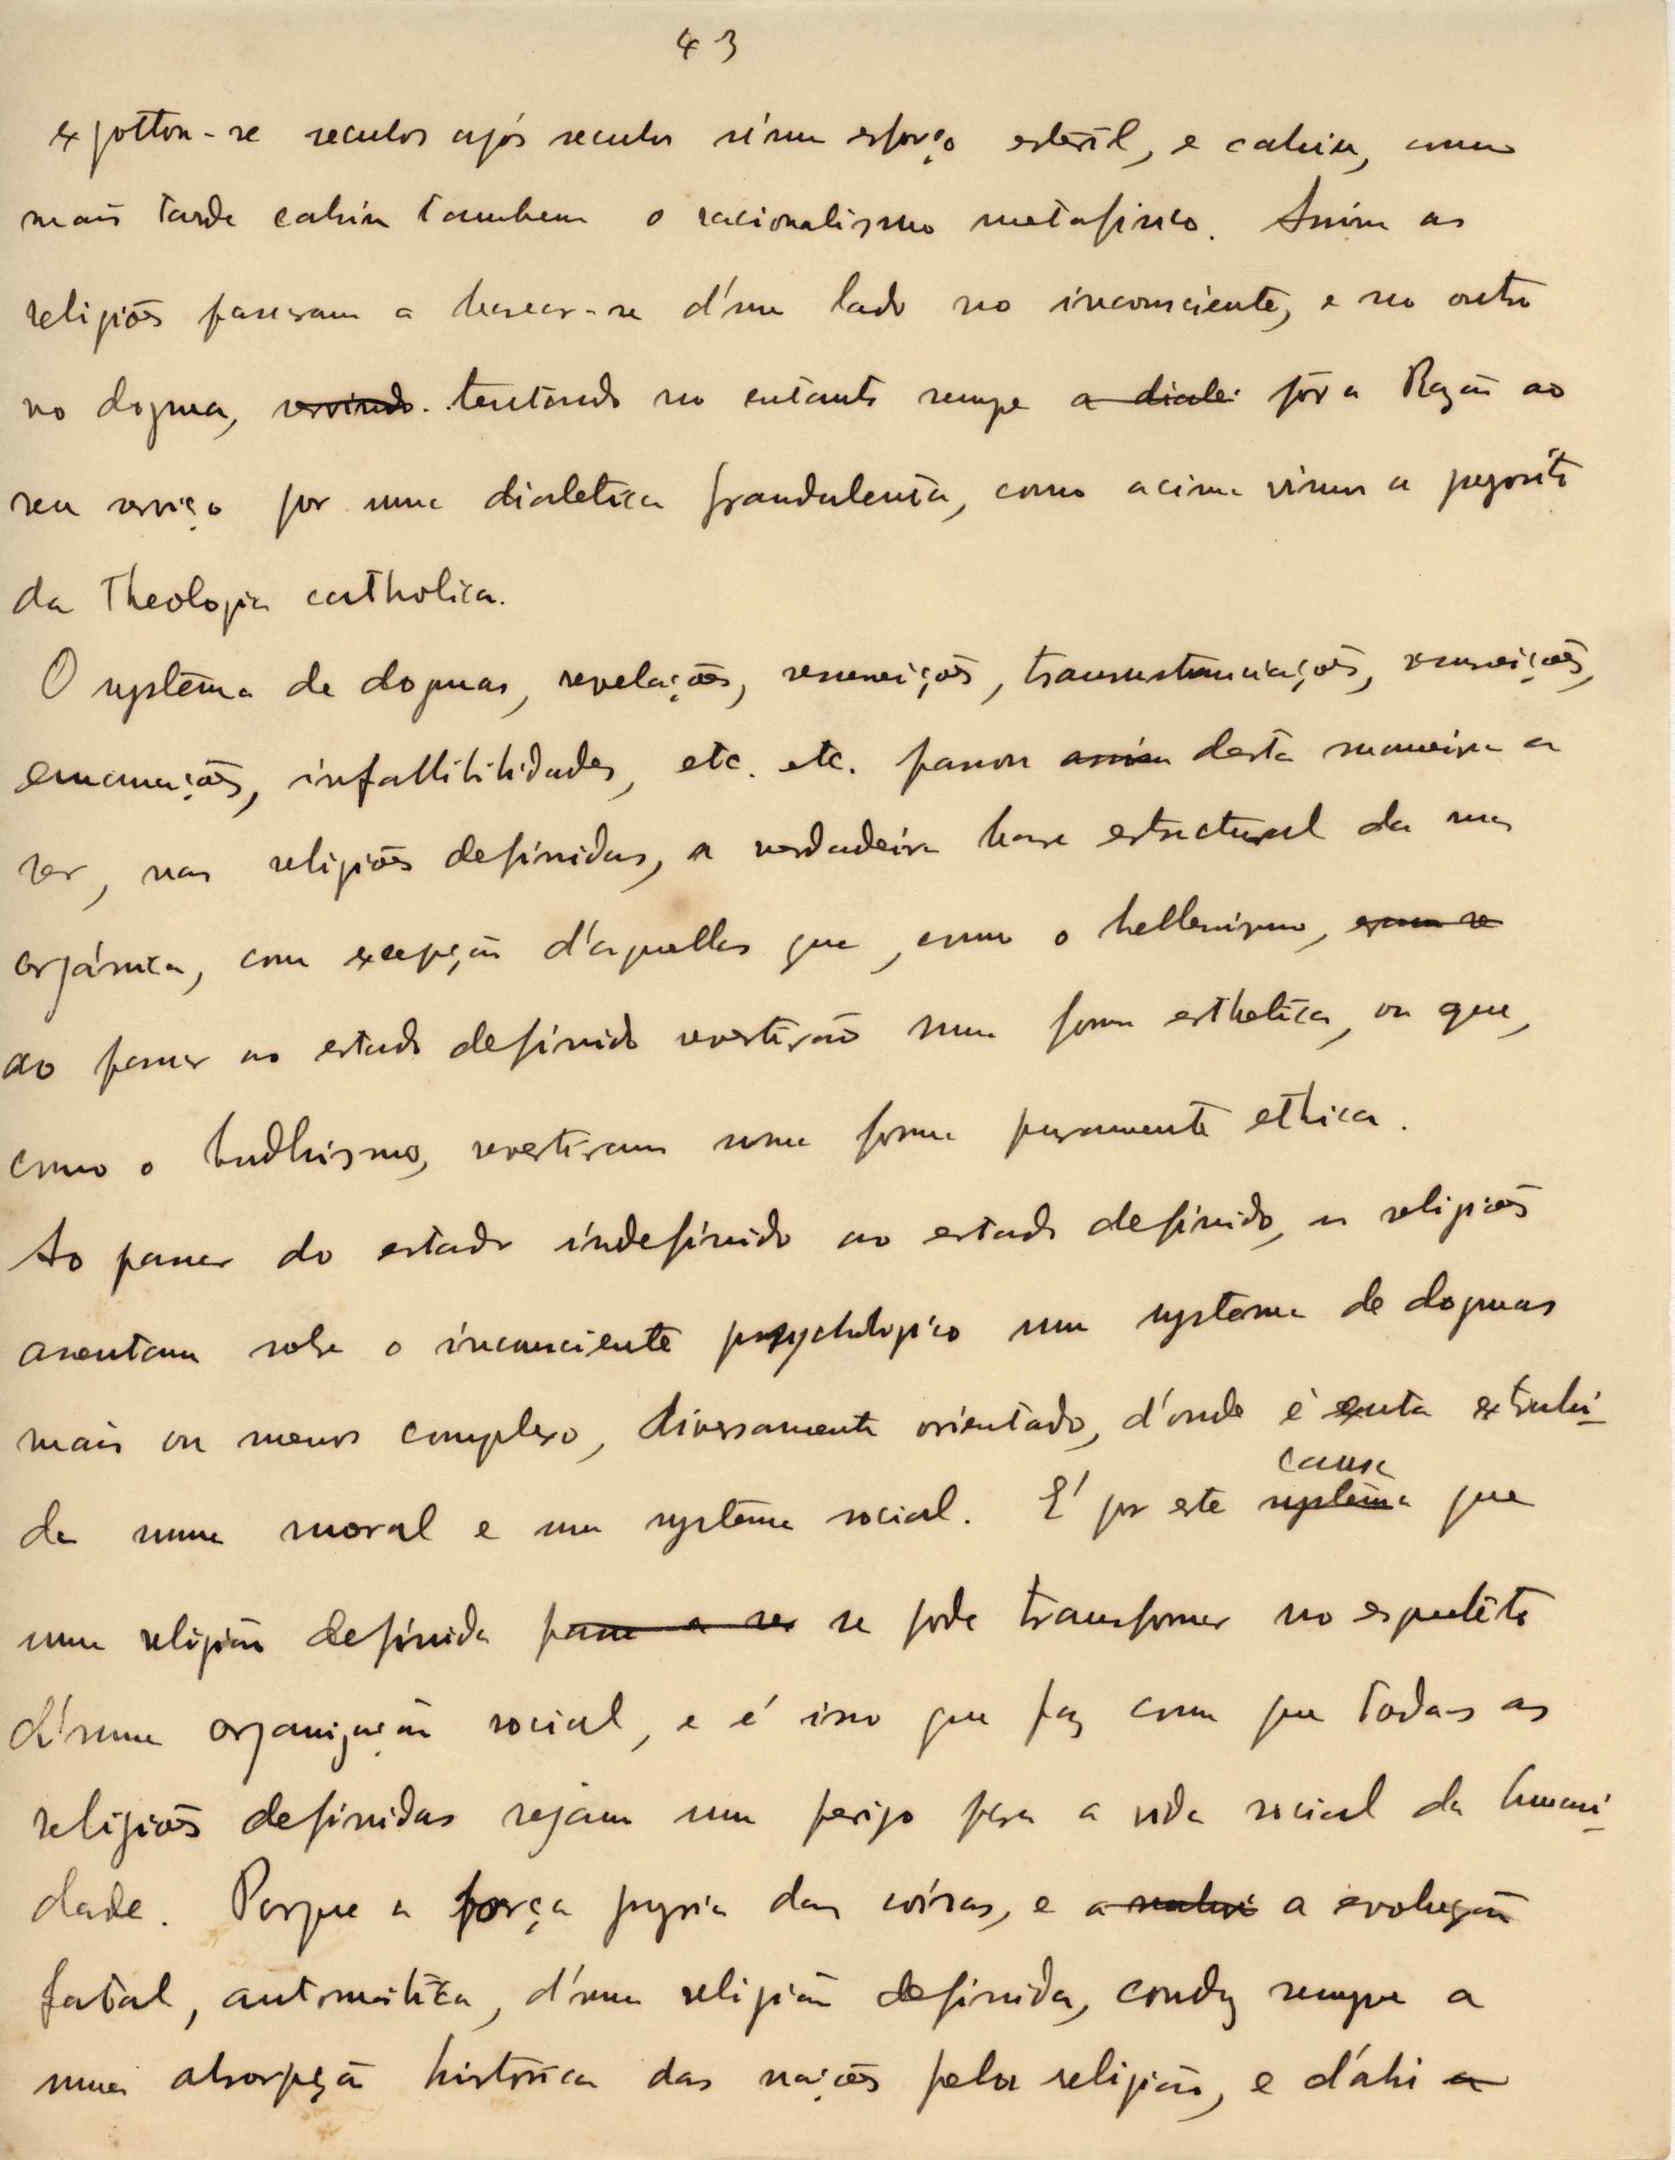 43
exgottou-se seculos após seculos n'um esforço esteril, e cahiu, como
mais tarde cahiu tambem o racionalismo metafisico. Assim as
religiões passaram a basear-se d'um lado no inconsciente, e no outro
no dogma, servindo. tentando no entanto sempre a diale pôr a Razão ao
seu serviço por uma dialetica fraudulenta, como acima vimos a proposito
da Theologia catholica.
O systêma de dogmas, revelações, ressurreições, transustanciações,
emanações, infallibilidades, etc. etc. passou assim desta maneira a
ser, nas religiões definidas, a verdadeira base estructural da sua
orgánica, com excepção d'aquellas que, como o hellenismo,
ao passar ao estado definido revestirão uma forma esthetica, ou que,
como o budhismo, revestiram uma forma puramente ethica.
Ao passar do estado indefinido ao estado definido, as religiões
assentam sobre o inconsciente psychologico um systema de dogmas
mais ou menos complexo, diversamente orientado, d'onde é extrahi-
da uma moral e um systema social. E' por este systema causa que
uma religião definida passa a ser se pode transformar no esqueleto
d'uma organização social, e é isso que faz com que todas as
religiões definidas sejam um perigo para a vida social da humani-
dade. Porque a força propria das coisas, e a a evolução
fatal, automática, d'uma religião definida, conduz sempre a
uma absorpção historica das nações pela religião, e d'ahi a